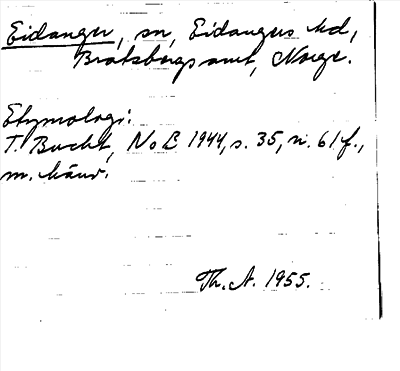 Eidanger, sn, Eidangers hd,
Bratsbergs amt, Norge.
Etymologi:
T. Bucht, NoB 1944, s. 35, n. 61 f.,
m. hänv.
Th. A. 1955.